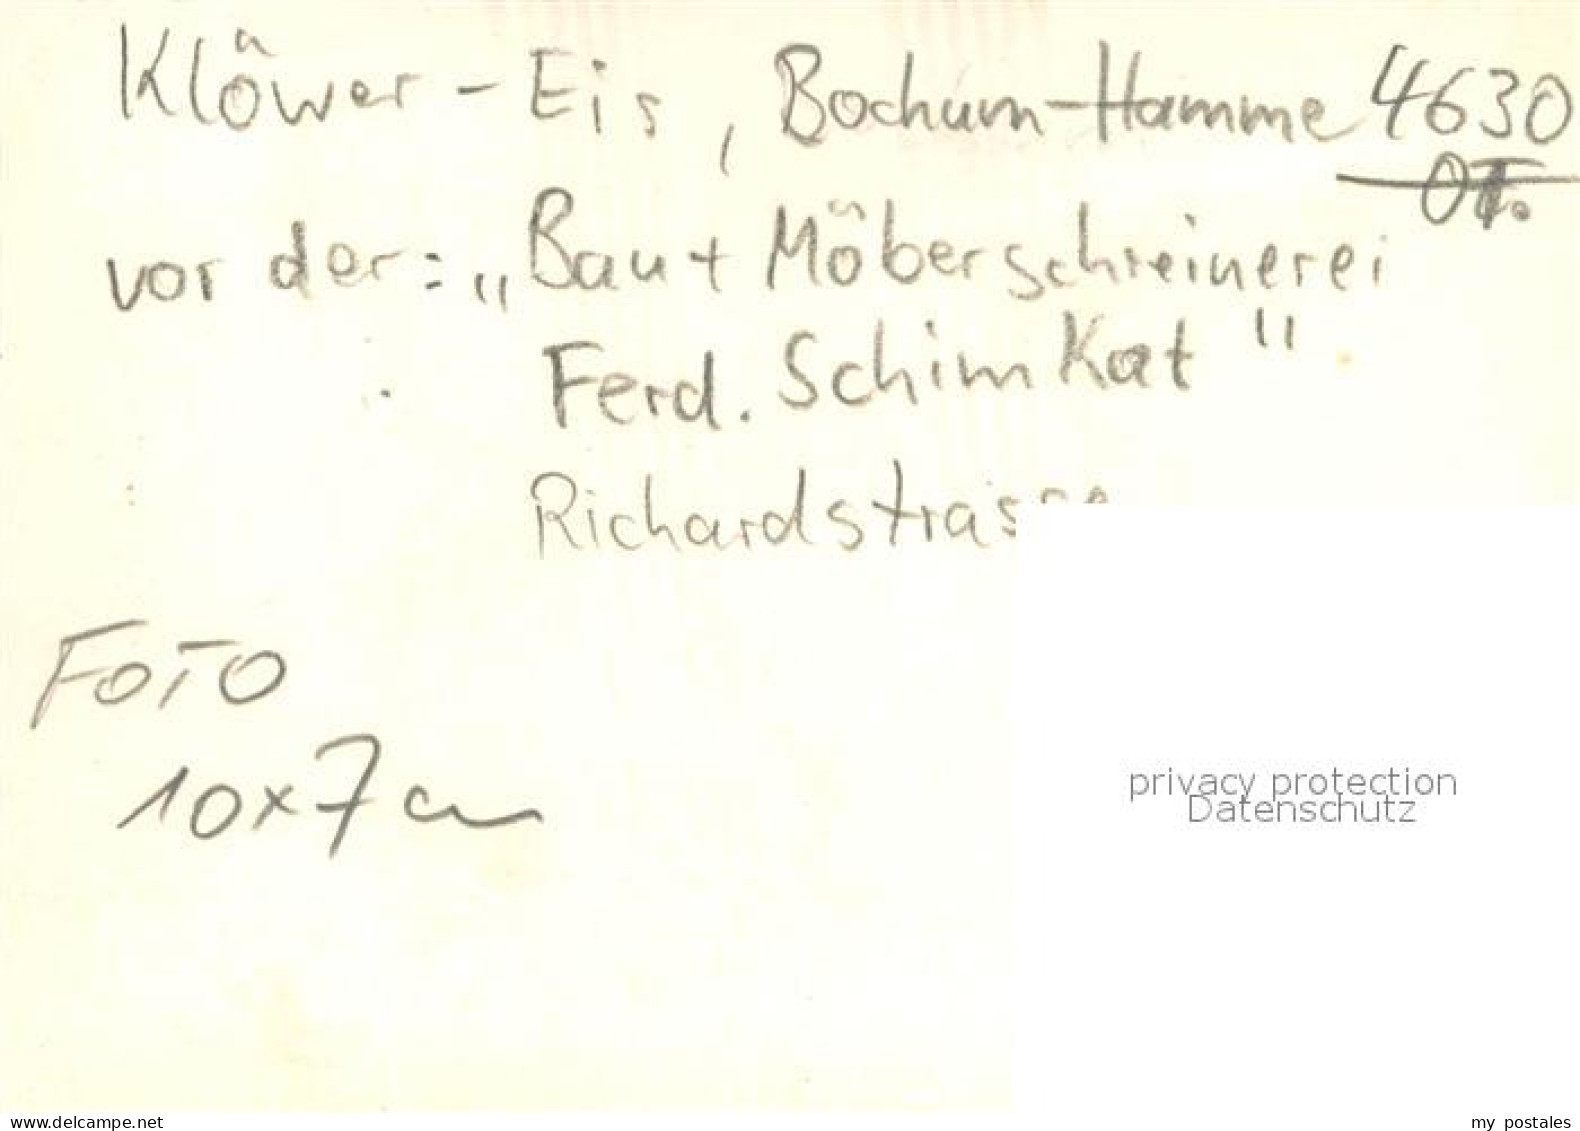 Klöwer - Eis, Bochum-Hamme 4630
OT.
vor der: „Bau + Möberschreinerei
Ferd. Schimkat"
Richardstrasse
FOTO
10x7 cm
privacy protection
Datenschutz
www.delcampe.net
my_postales